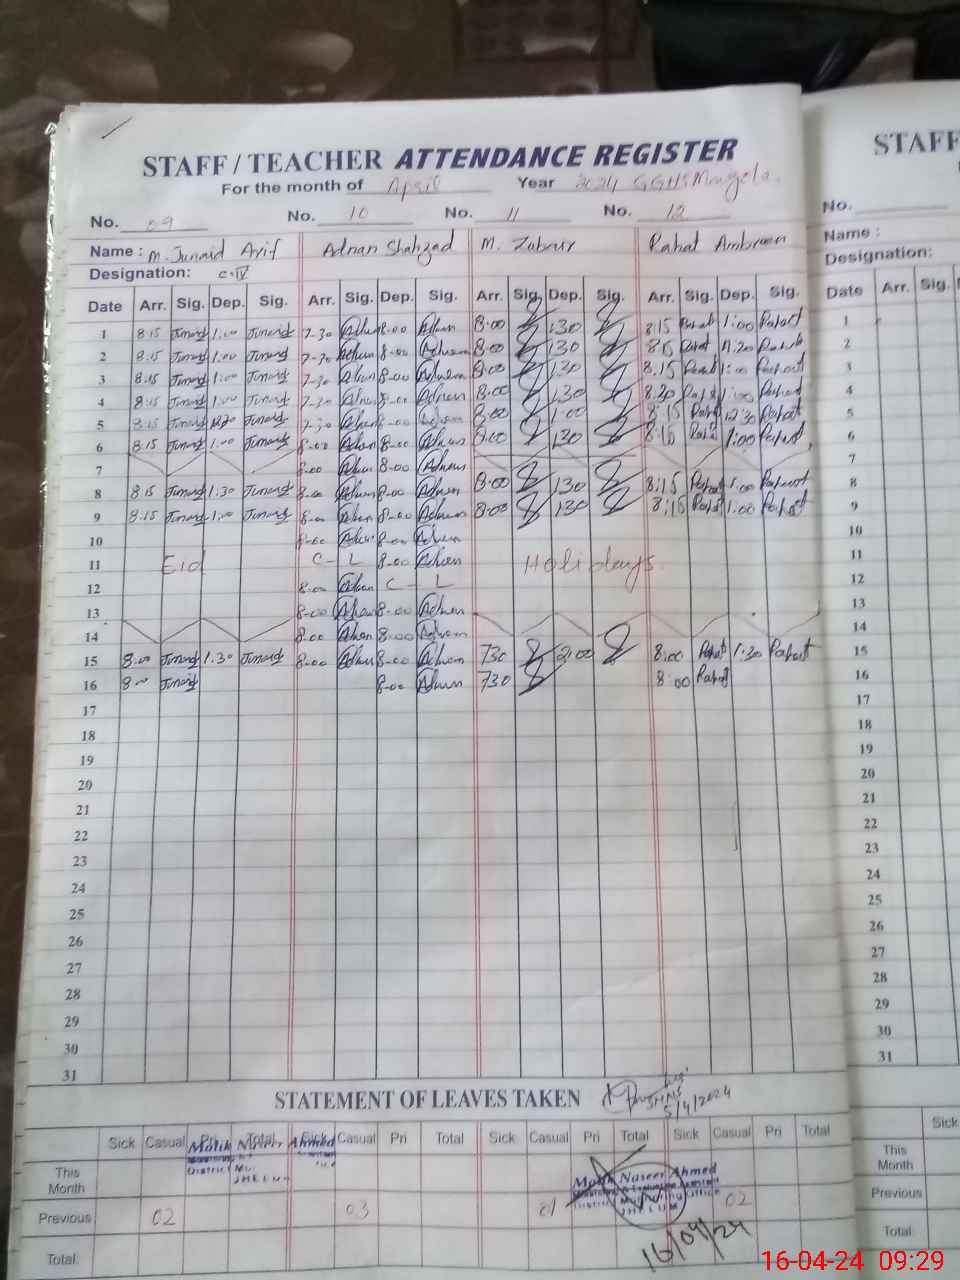 STAFF / TEACHER ATTENDANCE REGISTER
For the month of April Year 2024 GGHS Mongola.
No. 09 No. 10 No. 11 No. 12
Name : M. Junaid Arif Adnan Shahzad M. Zaboor Rahat Ambreen
Designation: C-IV
Date Arr. Sig. Dep. Sig. Arr. Sig. Dep. Sig. Arr. Sig. Dep. Sig. Arr. Sig. Dep. Sig.
1 8:15 Junaid 1:00 Junaid 7-30 Adnan 8-00 Adnan 8:00 130 8:15 Rahat 1:00 Rahat
2 8:15 Junaid 1:00 Junaid 7-30 Adnan 8-00 Adnan 8:00 130 8:15 Rahat 11:20 Rahat
3 8:15 Junaid 1:00 Junaid 7-30 Adnan 8-00 Adnan 8:00 130 8:15 Rahat 1:00 Rahat
4 8:15 Junaid 1:00 Junaid 7-30 Adnan 8-00 Adnan 8:00 130 8:20 Rahat 1:00 Rahat
5 8:15 Junaid Junaid 7-30 Adnan 8-00 Adnan 8:00 1:00 8:15 Rahat 12:30 Rahat
6 8:15 Junaid 1:00 Junaid 8-00 Adnan 8-00 Adnan 8:00 130 8:15 Rahat 1:00 Rahat
7 8-00 Adnan 8-00 Adnan
8 8:15 Junaid 1:30 Junaid 8-00 Adnan 8-00 Adnan 8:00 130 8:15 Rahat 1:00 Rahat
9 8:15 Junaid 1:00 Junaid 8-00 Adnan 8-00 Adnan 8:00 130 8:15 Rahat 1:00 Rahat
10 8-00 Adnan 8-00 Adnan
11 Eid C - L 8-00 Adnan Holidays
12 8-00 Adnan C - L
13 8-00 Adnan 8-00 Adnan
14 8-00 Adnan 8-00 Adnan
15 8:00 Junaid 1:30 Junaid 8-00 Adnan 8-00 Adnan 730 2:00 8:00 Rahat 1:30 Rahat
16 8:00 Junaid 8-00 Adnan 730 8:00 Rahat
17
18
19
20
21
22
23
24
25
26
27
28
29
30
31
STATEMENT OF LEAVES TAKEN
5/4/2024
Sick Casual Pri Total Sick Casual Pri Total Sick Casual Pri Total Sick Casual Pri Total
Malik Naseer Ahmed
District
JHELUM
This
Month
Malik Naseer Ahmed
District Monitoring Officer
JHELUM
Previous 02 03 01 02
16/04/24
Total
STAFF
No.
Name :
Designation:
Date Arr. Sig.
1
2
3
4
5
6
7
8
9
10
11
12
13
14
15
16
17
18
19
20
21
22
23
24
25
26
27
28
29
30
31
Sick
This
Month
Previous
Total
16-04-24 09:29